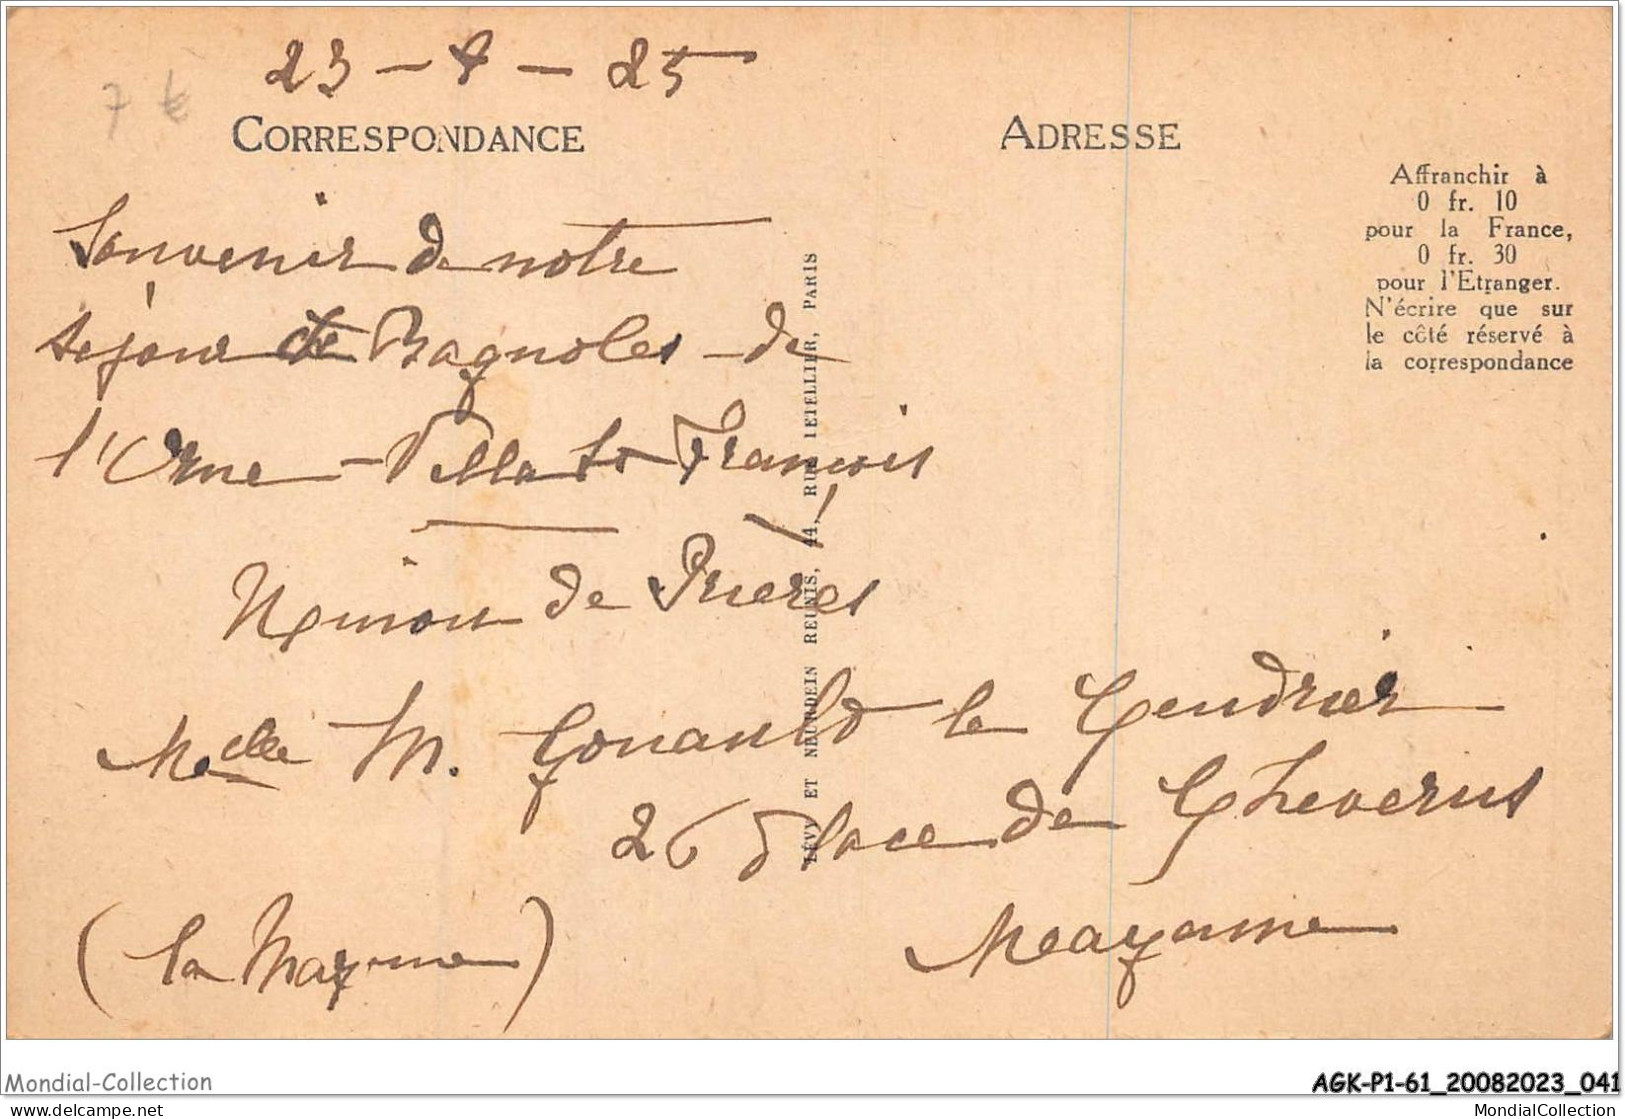 23 - 8 - 25
7 €
CORRESPONDANCE
ADRESSE
Affranchir à
0 fr. 10
pour la France,
0 fr. 30
pour l'Etranger.
N'écrire que sur
le côté réservé à
la correspondance
Souvenir de notre
séjour de Bagnoles de
l'Orne - Villa St François
Union de Prières
LÉVY ET NEURDEIN REUNIS, 44, RUE LETELLIER, PARIS
Melle M. Gonault le Gendrier
26 Place de Cheverus
Mayenne
(la Mayenne)
Mondial-Collection
AGK-P1-61_20082023_041
delcampe.net
MondialCollection